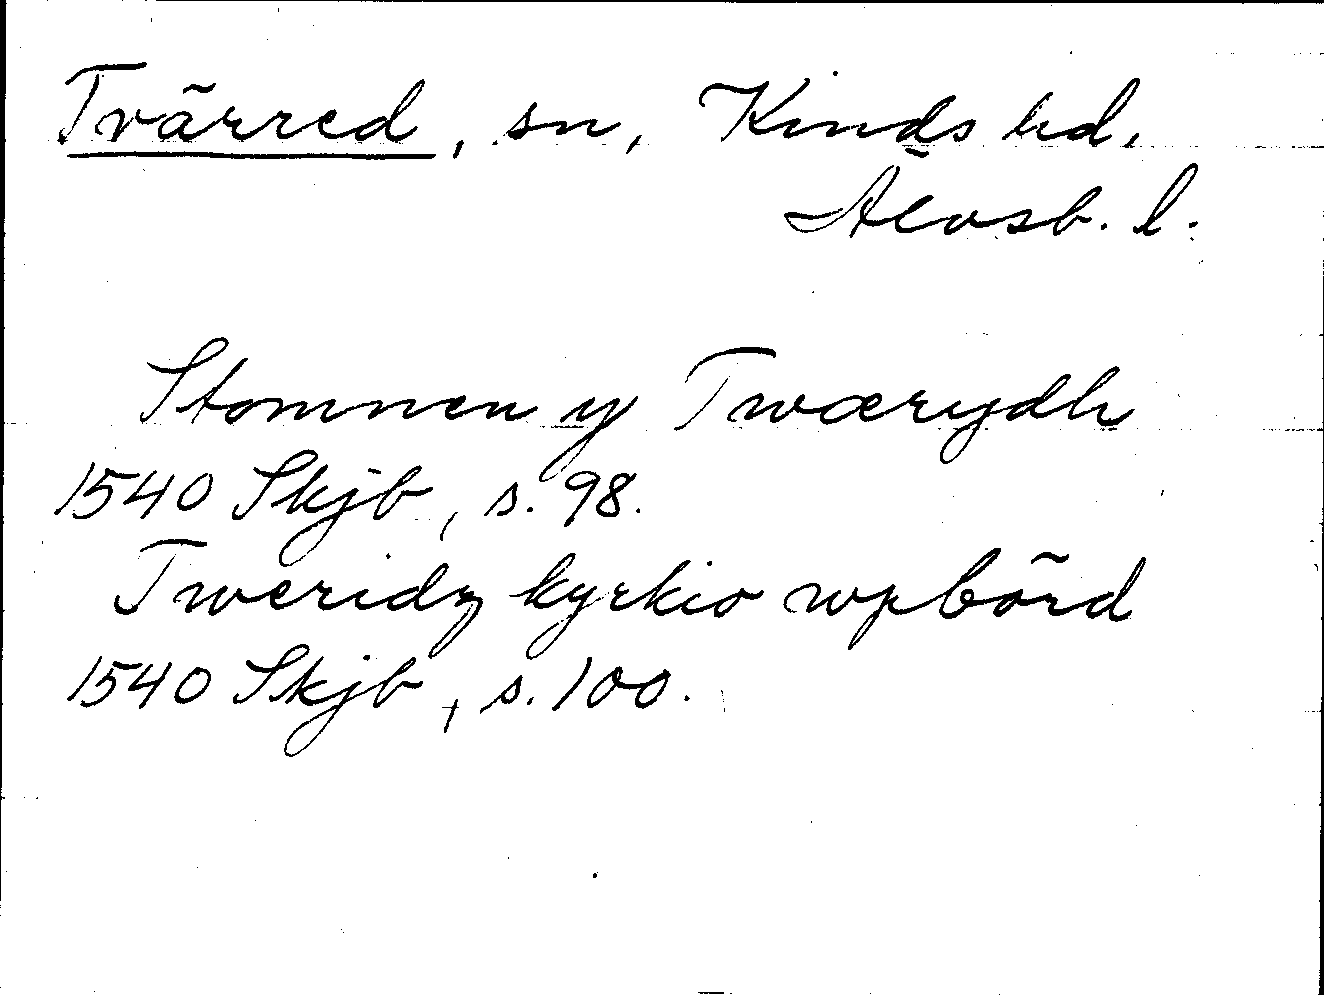 Tvärred, sn, Kinds hd,
Älvsb. l.
Stomnen y Twærydh
1540 Skjb, s. 98.
Tweridz kyrkio wpbörd
1540 Skjb, s. 100.